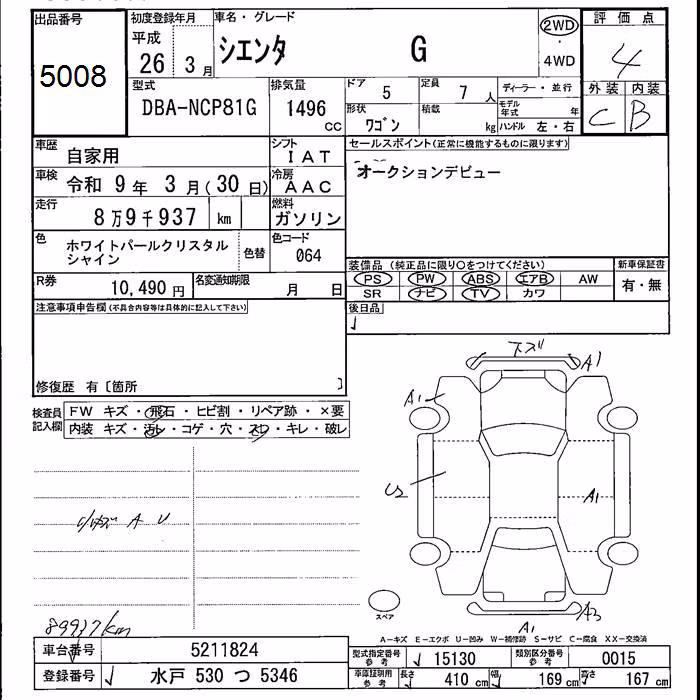 出品番号 初度登録年月 車名・グレード 2WD 評価点
5008 平成 シエンタ G ・ 4
26 3月 4WD
型式 排気量 ドア 5 定員 7人 ディーラー・並行 外装 内装
DBA-NCP81G 1496 cc 形状 ワゴン 積載 kg モデル年式 年 C B
ハンドル 左・右
車歴 自家用 シフト IAT セールスポイント(正常に機能するものに限ります)
車検 令和 9年 3月(30日) 冷房 AAC オークションデビュー
走行 8万9千937 km 燃料 ガソリン
色 ホワイトパールクリスタル 色替 色コード
シャイン 064
装備品 (純正品に限り○をつけてください) 新車保証書
R券 10,490円 名変通知期限 月 日 PS PW ABS エアB AW 有・無
SR ナビ TV カワ
注意事項申告欄(不具合内容等は具体的に記入して下さい) 後日品
修復歴 有〔箇所 〕
検査員 FW キズ・飛石・ヒビ割・リペア跡・×要
記入欄 内装 キズ・汚レ・コゲ・穴・スレ・キレ・破レ
スズ A1
A1
U2 A1
A U
スペア A3
A1
89937km
A-キズ E-エクボ U-凹み W-補修跡 S-サビ C-腐食 XX-交換済
車台番号 5211824 型式指定番号 参考 15130 類別区分番号 参考 0015
登録番号 水戸 530 つ 5346 車庫証明用 参考 長さ 410cm 幅 169cm 高さ 167cm